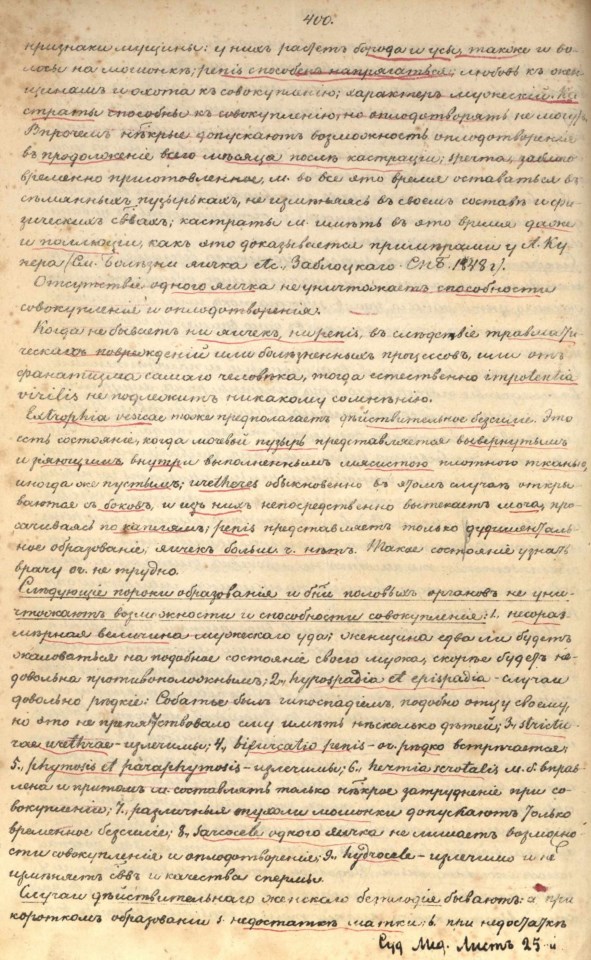 400.
признаки мущины: у нихъ растетъ борода и усы, также и во-
лосы на мошонкѣ; penis способенъ напрягаться, любовь къ жен-
щинамъ и охота къ совокупленію; характеръ мужескій. Ка-
страты способны къ совокупленію, но оплодотворять не могутъ.
Впрочемъ нѣкрые допускаютъ возможность оплодотворенія
въ продолженіе всего мѣсяца послѣ кастраціи; sperma, заблаго-
временно приготовленное, м. во все это время оставаться въ
сѣмянныхъ пузырькахъ, не измѣняясь въ своемъ составѣ и фи-
зическихъ сввахъ; кастраты м. имѣть въ это время даже
и поллюціи, какъ это доказывается примѣрами у А. Ку-
пера (См. Болѣзни яичка Ас. Заблоцкаго. СПБ. 1848 г).
Отсутствіе одного яичка не уничтожаетъ способности
совокупленія и оплодотворенія.
Когда не бываетъ ни яичек, ни penis, въ слѣдствіе травмати-
ческихъ поврежденій или болѣзненныхъ процессовъ, или отъ
фанатизма самаго человѣка, тогда естественно impotentia
virilis не подлежитъ никакому сомнѣнію.
Extrophia vesicae тоже предполагаетъ дѣйствительное безсиліе. Это
есть состояніе, когда мочевой пузырь представляется вывернутымъ
и внутри выполненнымъ мясистою плотного тканью,
иногда же пустымъ; urethores обыкновенно въ этомъ случаѣ откры-
ваются съ боковъ, и изъ нихъ непосредственно вытекаетъ моча, про-
сачиваясь по каплямъ; penis представляетъ только рудименталь-
ное образованіе, яичекъ больш. ч. нѣтъ. Такое состояніе узнать
врачу оч. не трудно.
Слѣдующіе пороки образованія и бни половыхъ органовъ не уни-
чтожаютъ возможности и способности совокупленія: 1., несораз-
мѣрная величина мужескаго уда; женщина едва ли будетъ
жаловаться на подобное состояніе своего мужа, скорѣе будетъ не-
довольна противоположнымъ; 2., hypospadia et epispadia – случаи
довольно рѣдкіе: Собатье былъ гипоспадіемъ, подобно отцу своему,
но это не препятствовало ему имѣть нѣсколько дѣтей; 3., strictu-
rae urethrae – излечимы; 4., bifurcatio penis – оч. рѣдко встрѣчается;
5., phymosis et paraphymosis – излечимы; 6., hernia scrotalis м. б. вправ-
лена и притомъ м. составлять только нѣкрое затрудненіе при со-
вокупленіи; 7., различныя опухоли мошонки допускаютъ только
временное безсиліе; 8., sarcocele одного яичка не лишаетъ возможно-
сти совокупленія и оплодотворенія; 9., hydrocele – излечимо и не
измѣняетъ сввъ и качества спермы.
Случаи дѣйствительнаго женскаго безплодія бываютъ: a при
короткомъ образованіи s. недостаткѣ матки: b. при недостаткѣ
Суд. Мед. Листъ 25-й